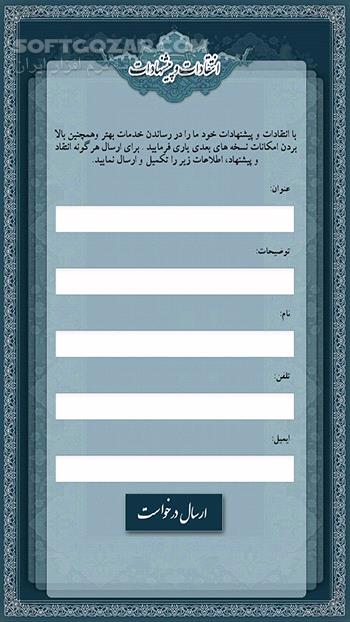 SOFTGOZAR.COM
نرم افزار ایران
انتقادات و پیشنهادات
با انتقادات و پیشنهادات خود ما را در رساندن خدمات بهتر وهمچنین بالا
بردن امکانات نسخه های بعدی یاری فرمایید . برای ارسال هرگونه انتقاد
و پیشنهاد، اطلاعات زیر را تکمیل و ارسال نمایید.
عنوان:
توضیحات:
نام:
تلفن:
ایمیل:
ارسال درخواست